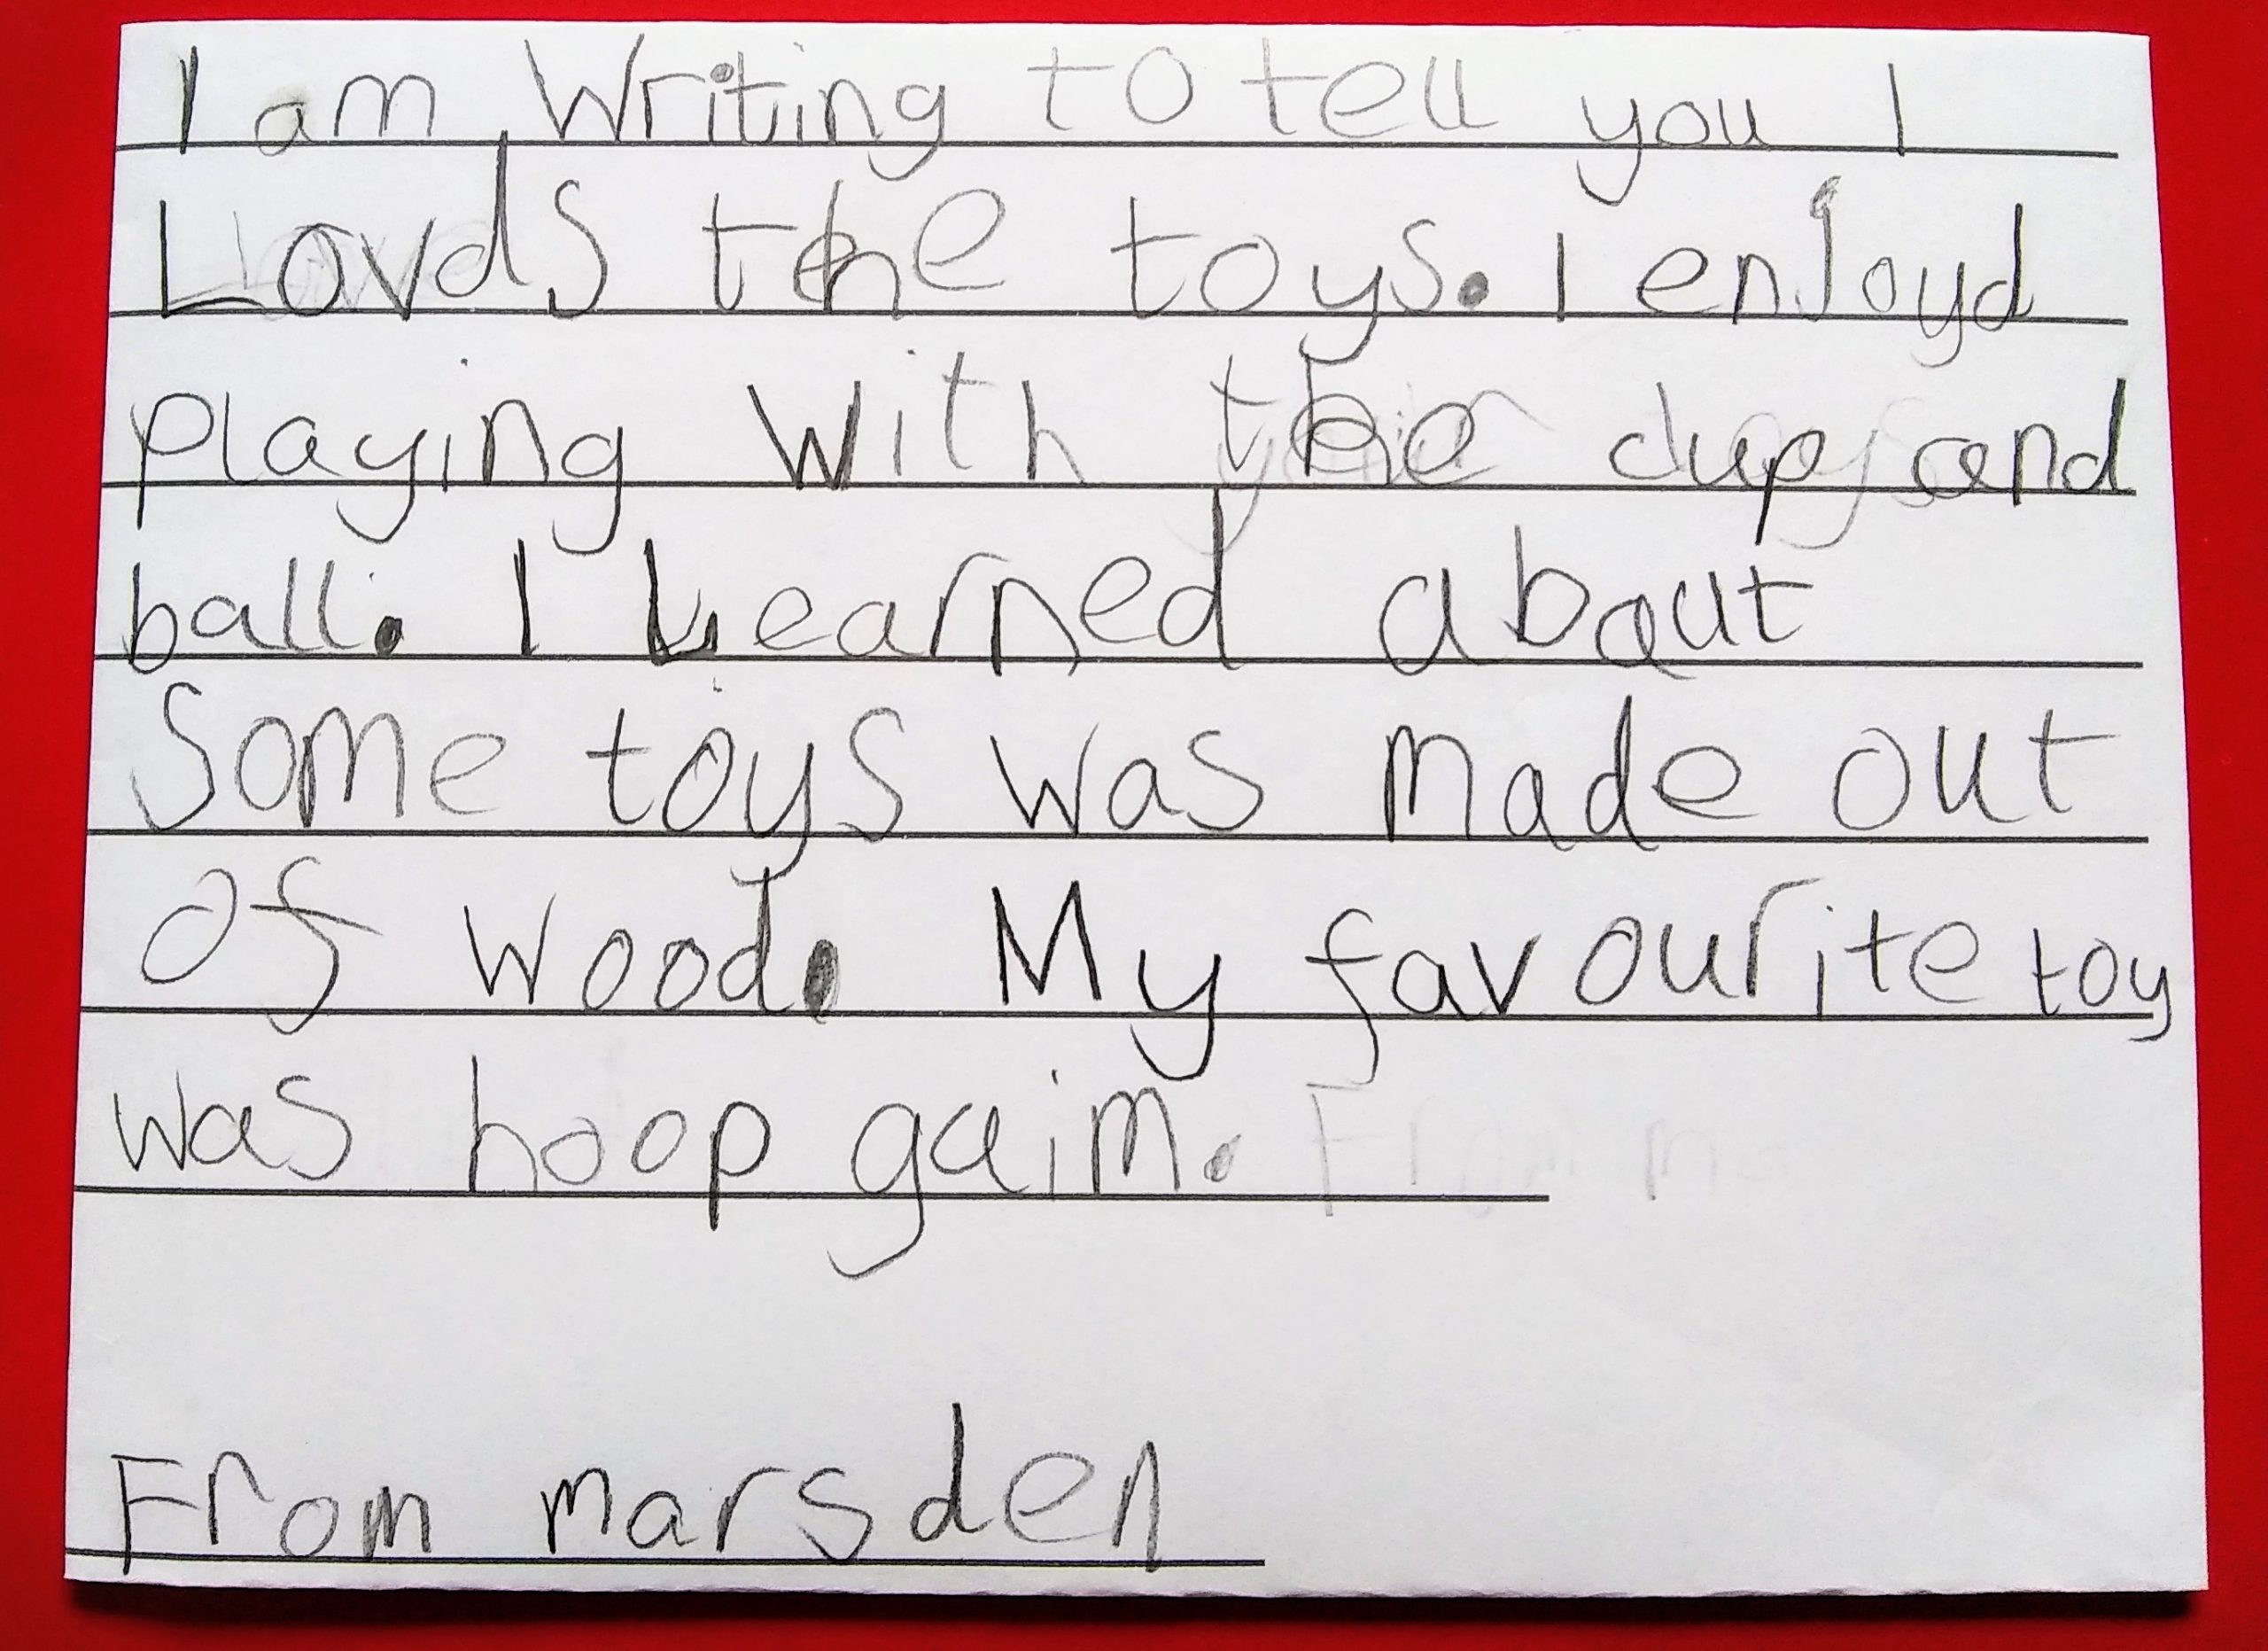 I am Writing to tell you I
Lovds the toys. I enJoyd
playing with the cup and
ball. I Learned about
Some toys was made out
of wood. My favourite toy
was hoop gaim.
From marsden